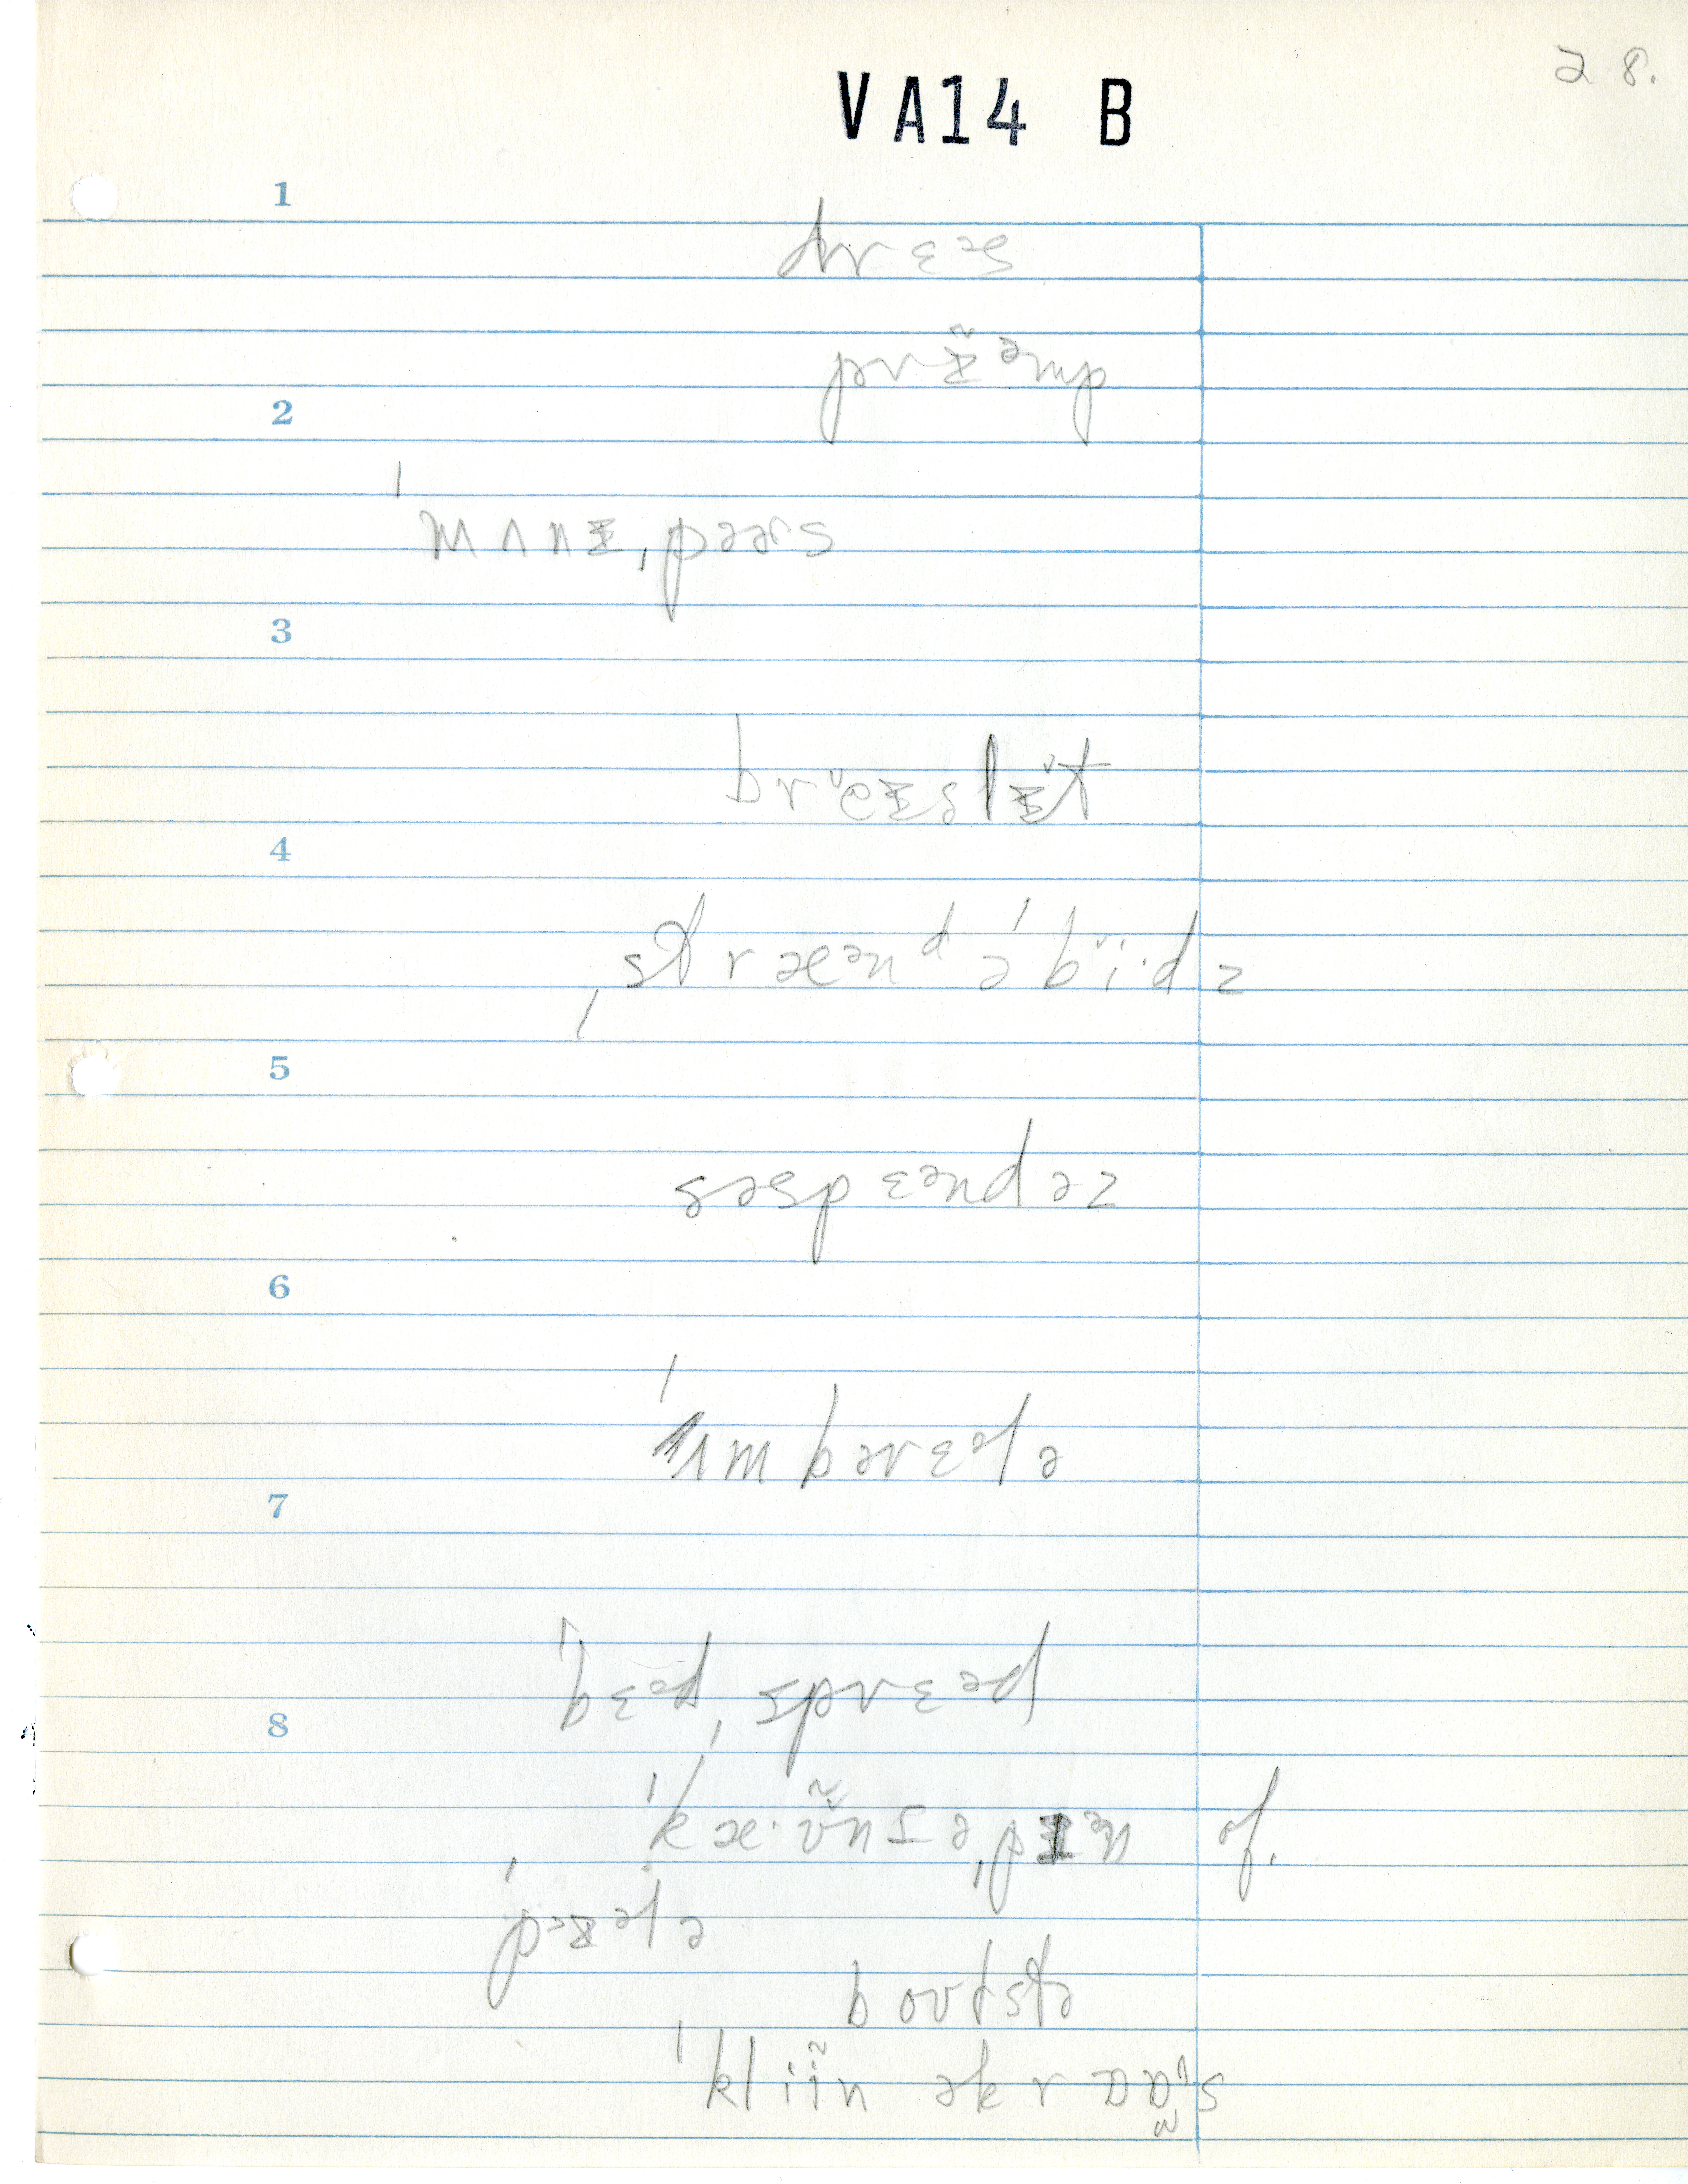 28.
VA14 B
1
drɛəs
prɪ̵̃əmp
2
ˈmʌnɪ̵ˌpəərs
3
brĕɪ̵slɪ̵̆t
4
ˌstræənᵈ ə ˈbĭi·dz
5
səspɛəndəz
6
ˈʌmbərɛələ
7
ˈbɛədˌsprɛəd
8
ˈkæ·ʊ̃nʃəˌpɪən of.
ˈpɪ̵ələ
boʊtstə
ˈkliĩn əkrɒɒs